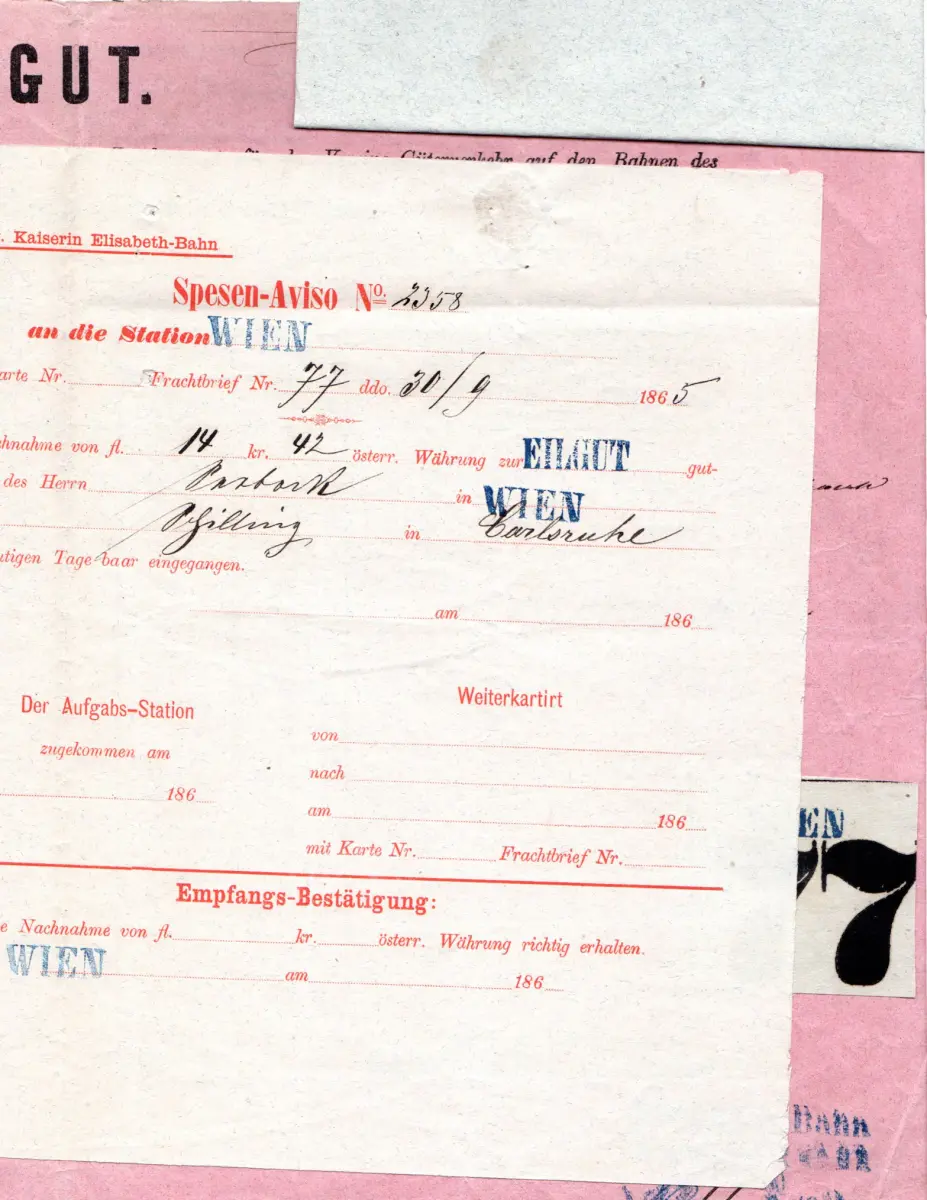 GUT.
auf den Bahnen des
Kaiserin Elisabeth-Bahn
Spesen-Aviso No. 2358
an die Station WIEN
arte Nr. Frachtbrief Nr. 77 ddo. 30/9 1865
chnahme von fl. 14 kr. 42 österr. Währung zur EILGUT gut-
des Herrn in WIEN
Schilling in Carlsruhe
utigen Tage baar eingegangen.
am 186
Der Aufgabs-Station
zugekommen am
186
Weiterkartirt
von
nach
am 186
mit Karte Nr. Frachtbrief Nr.
EN
77
Empfangs-Bestätigung:
e Nachnahme von fl. kr. österr. Währung richtig erhalten.
WIEN am 186
Bahn